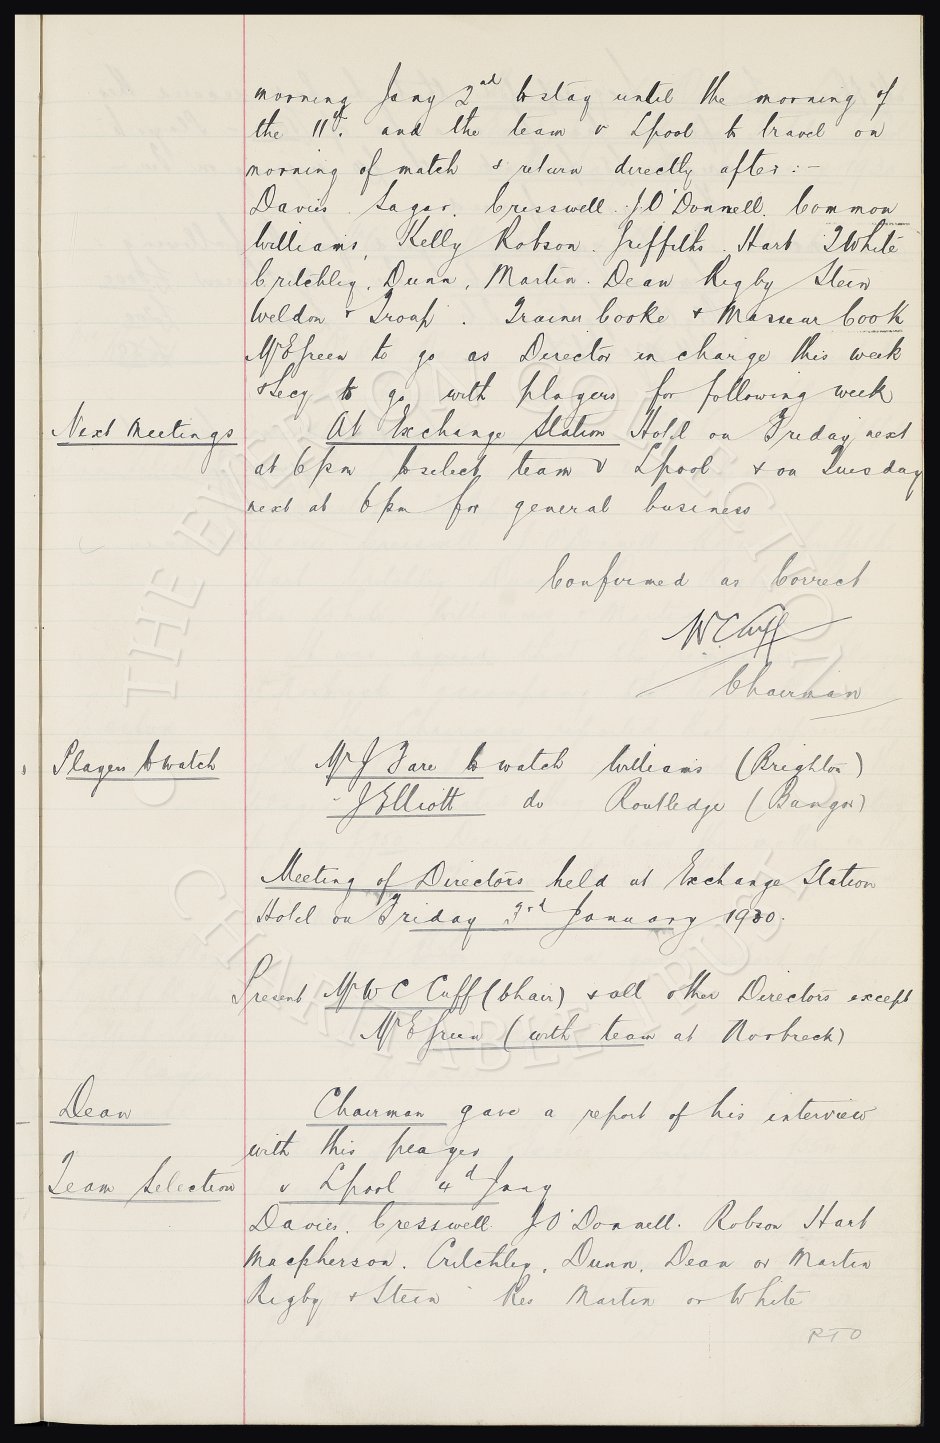 morning Jany 2nd to stay until the morning of
the 11th. and the team v Lpool to travel on
morning of match & return directly after :-
Davies. Sagar. Cresswell. J.O'Donnell. Common
Williams, Kelly Robson. Griffiths. Hart T White
Critchley. Dunn, Martin. Dean Rigby Stein
Weldon & Troup. Trainer Cooke & Masseur Cook
Mr E Green to go as Director in charge this week
& Secy to go with players for following week
Next Meetings At Exchange Station Hotel on Friday next
at 6 pm to select team v Lpool & on Tuesday
next at 6 pm for general business
Confirmed as Correct
W C Cuff
Chairman
Players to watch Mr J Fare to watch Williams (Brighton)
" J Elliott do Routledge (Bangor)
Meeting of Directors held at Exchange Station
Hotel on Friday 3rd January 1930.
Present Mr W C Cuff (Chair) & all other Directors except
Mr E Green (with team at Norbreck)
Dean Chairman gave a report of his interview
with this player
Team Selection v Lpool 4th Jany
Davies. Cresswell. J O'Donnell. Robson Hart
Macpherson. Critchley. Dunn. Dean or Martin
Rigby & Stein Res Martin or White
PTO
© THE EVERTON COLLECTION
CHARITABLE TRUST